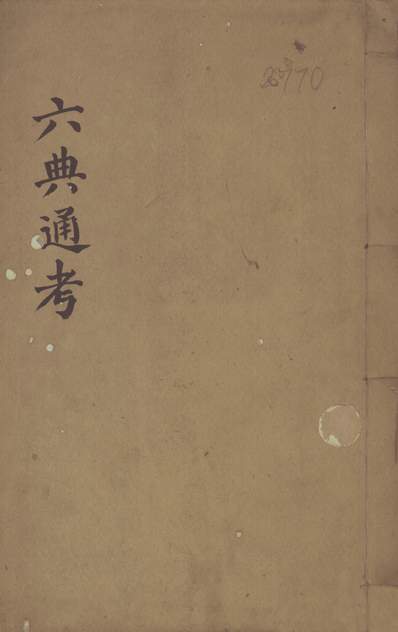 六典通考